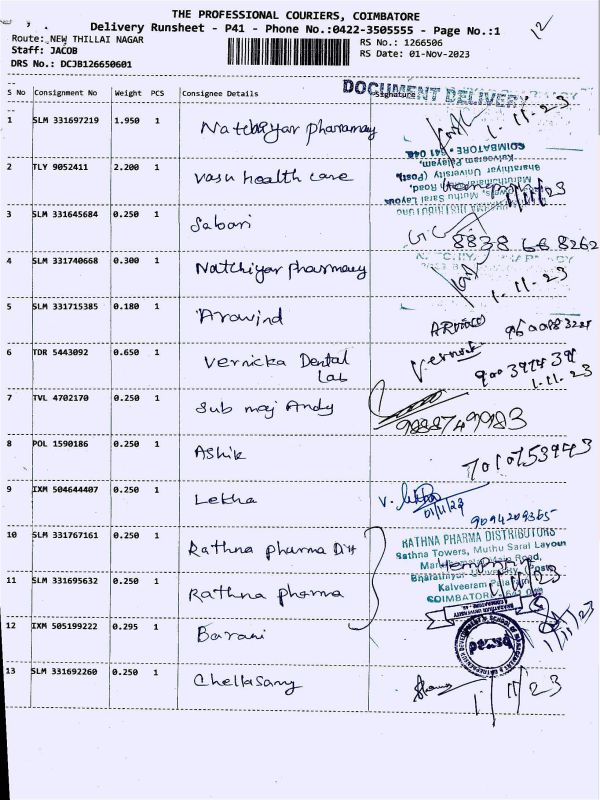 THE PROFESSIONAL COURIERS, COIMBATORE
Delivery Runsheet - P41 - Phone No.:0422-3505555 - Page No.:1
12
Route: NEW THILLAI NAGAR
RS No.: 1266506
Staff: JACOB
RS Date: 01-Nov-2023
DRS No.: DCJB126650601
DOCUMENT DELIVERY
S No Consignment No Weight PCS Consignee Details Signature
1 SLM 331697219 1.950 1 Natchiyar pharamay 1-11-23
COIMBATORE - 641 046
Kalveeram Palayam,
Bharathiar University (Post),
2 TLY 9052411 2.200 1 Vasu health care 1/11/23
3 SLM 331645684 0.250 1 Sabari
8838 668262
4 SLM 331740668 0.300 1 Natchiyar pharmacy 1-11-23
5 SLM 331715385 0.180 1 Aravind
6 TDR 5443092 0.650 1 Vernicka Dental
Lab
1-11-23
7 TVL 4702170 0.250 1 Sub maj Andy
9888749983
8 POL 1590186 0.250 1 Ashik
7010753943
9 IXM 504644407 0.250 1 Lekha V. Lekha
01/11/23
9094209365
RATHNA PHARMA DISTRIBUTORS
10 SLM 331767161 0.250 1 Rathna pharma Dit
Rathna Towers, Muthu Sarai Layout
Main Road,
Bharathiyar University Post
11 SLM 331695632 0.250 1 Rathna pharma 1/11/23
Kalveeram Palayam
COIMBATORE - 641 046
12 IXM 505199222 0.295 1 Barani 1/11/23
13 SLM 331692260 0.250 1 Chellasamy 1/11/23